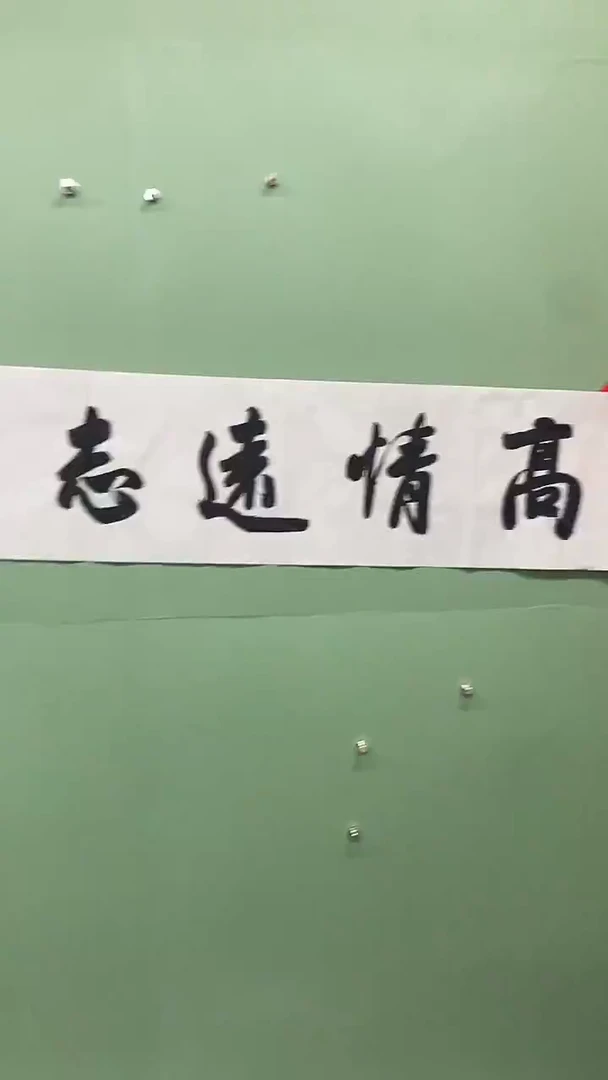 高情遠志